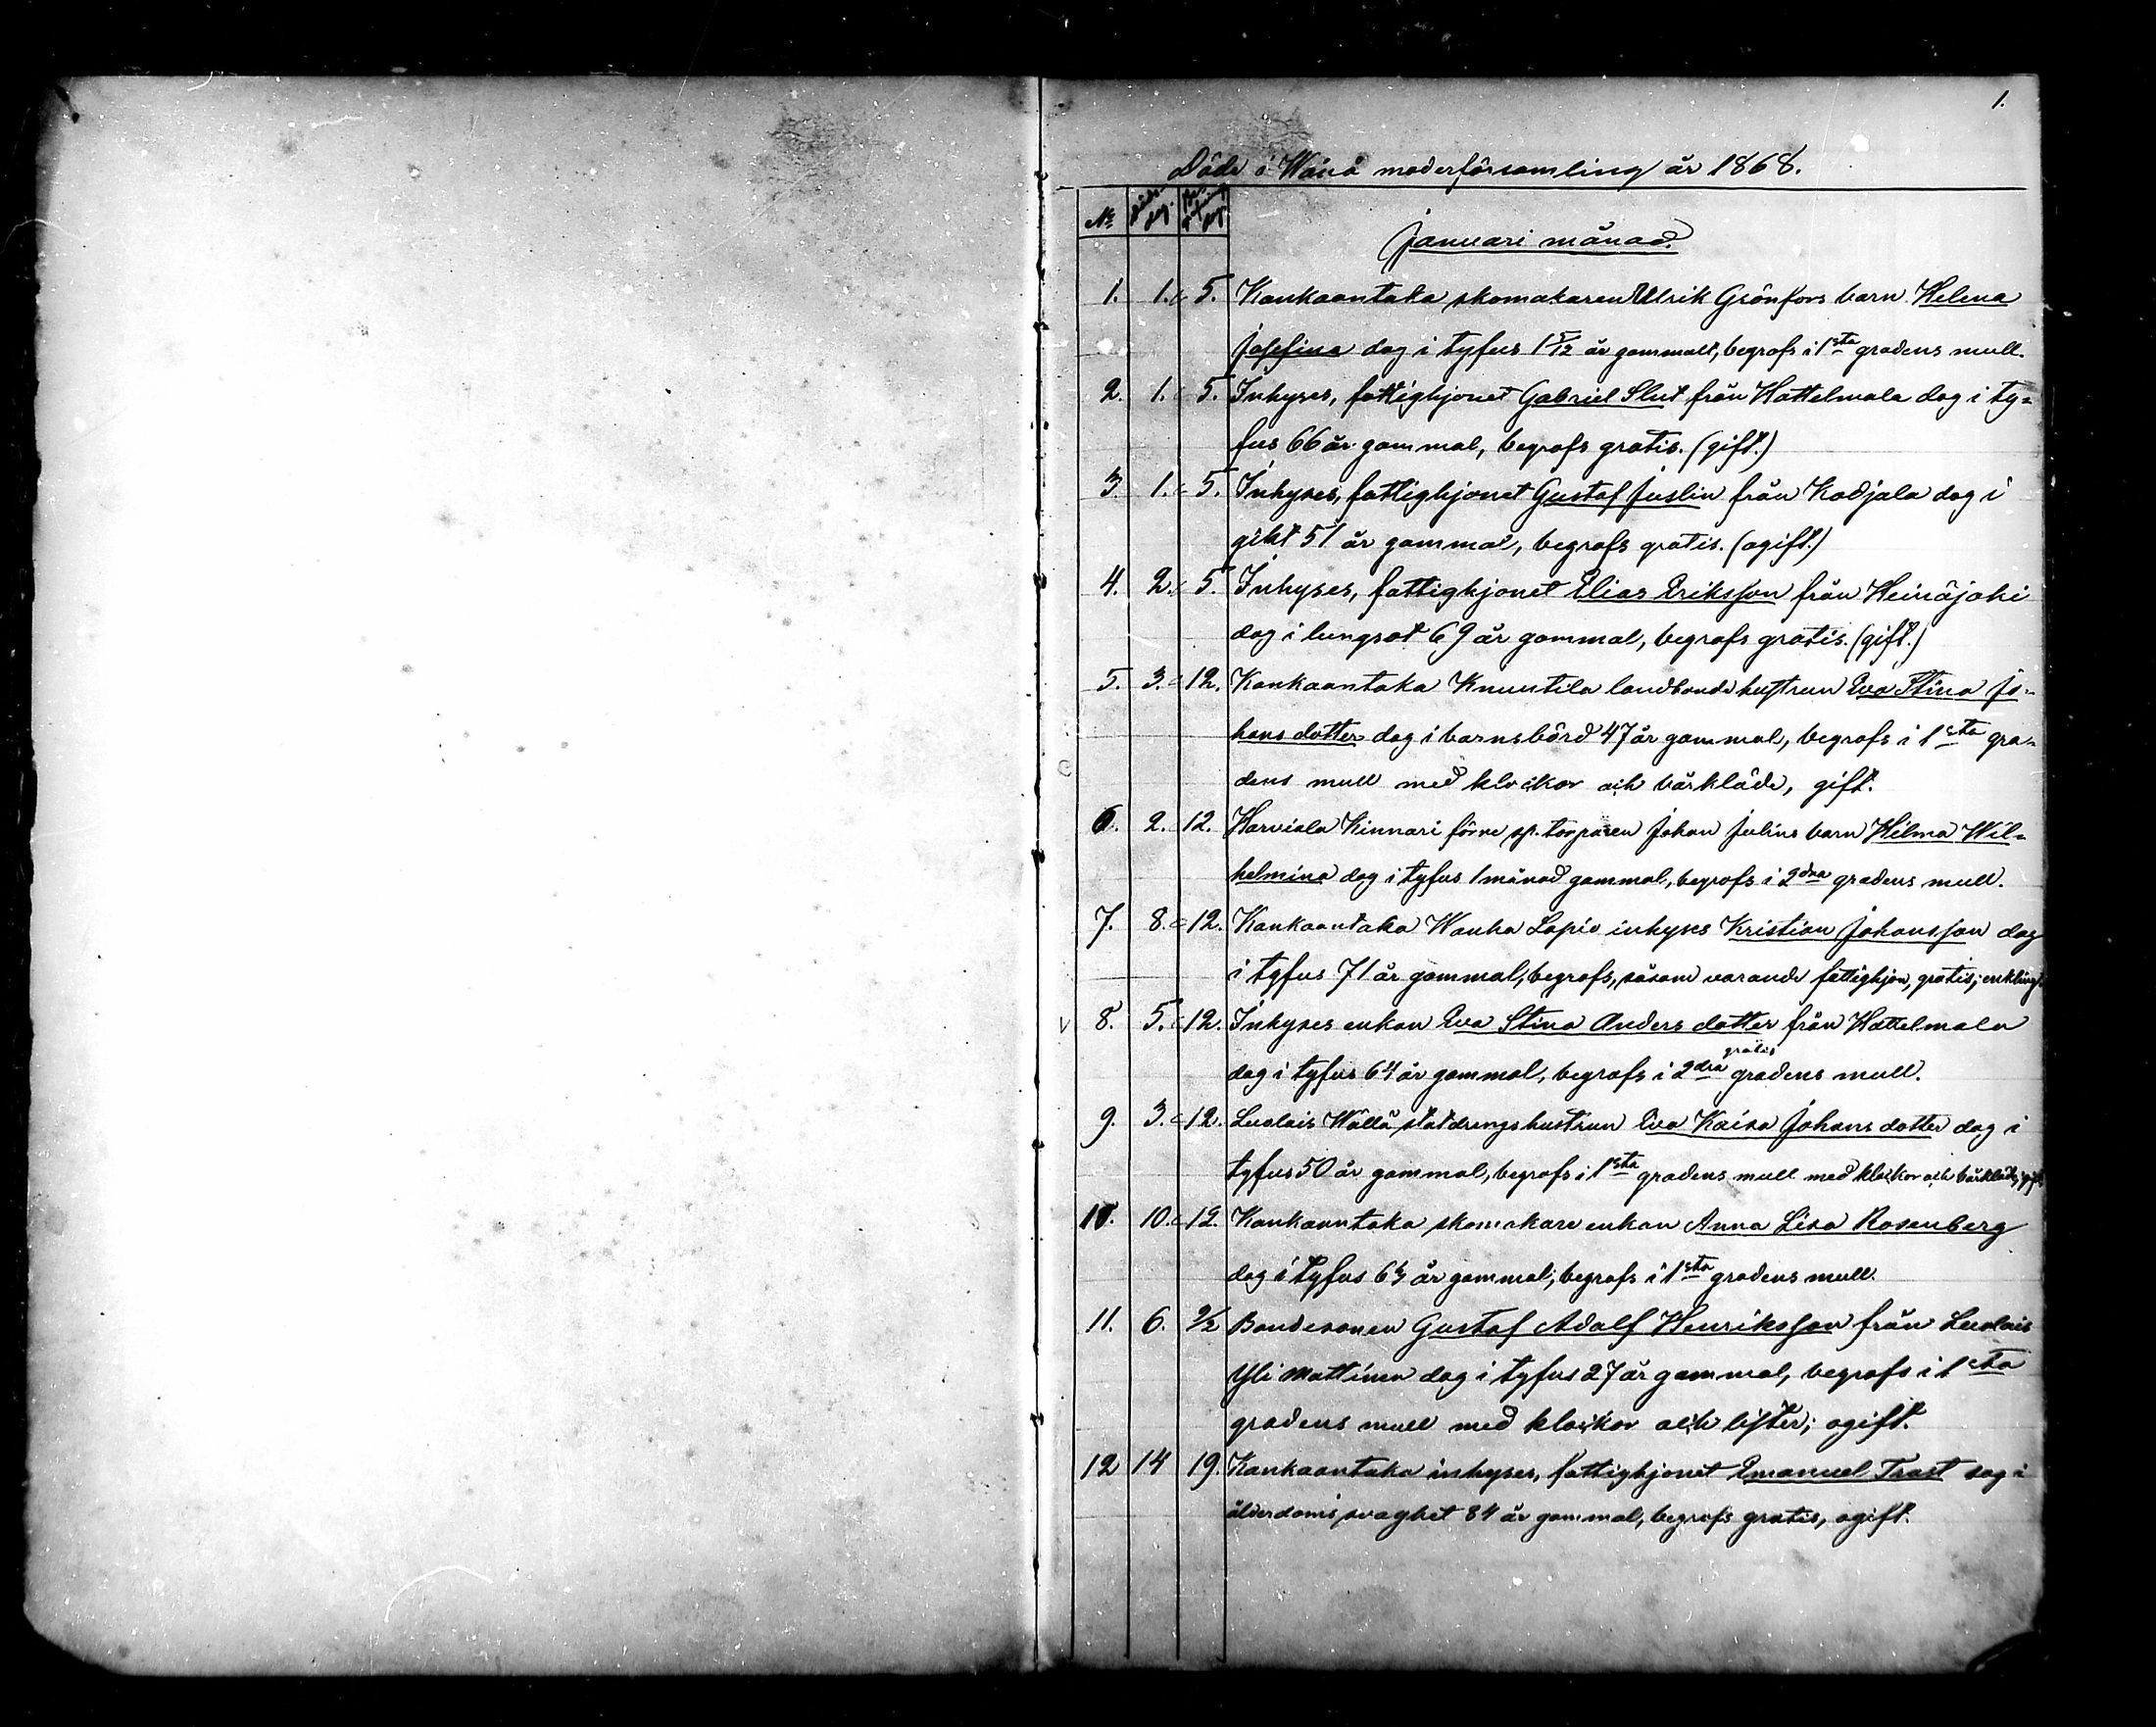 1.
Döde i Wånå moderförsamling år 1868.
No Döds dag. Be- grafning dag.
Januari månad.
1. 1. 5. Kankaantaka skomakaren Ulrik Grönfors barn Helena
Josefina dog i tyfus 1 5/12 år gammalt, begrofs i 1sta gradens mull.
2. 1. 5. Inhyses, fattighjonet Gabriel Slut från Hattelmala dog i ty-
fus 66 år gammal, begrofs gratis. (gift.)
3. 1. 5. Inhyses, fattighjonet Gustaf Juslin från Kodjala dog i
gikt 51 år gammal, begrofs gratis. (ogift.)
4. 2. 5. Inhyses, fattighjonet Elias Eriksson från Heinäjoki
dog i lungsot 69 år gammal, begrofs gratis. (gift.)
5. 3. 12. Kankaantaka Knuutila landbonde hustrun Eva Stina Jo-
hans dotter dog i barnsbörd 47 år gammal, begrofs i 1sta gra-
dens mull med klockor och bårkläde, gift.
6. 2. 12. Harviala Kinnari förre sp. torparen Johan Julius barn Hilma Wil-
helmina dog i tyfus 1 månad gammal, begrofs i 2dra gradens mull.
7. 8. 12. Kankaantaka Wanha Lapio inhyses Kristian Johansson dog
i tyfus 71 år gammal, begrofs, såsom varande fattighjon, gratis; enkling.
8. 5. 12. Inhyses enkan Eva Stina Anders dotter från Hattelmala
gratis
dog i tyfus 64 år gammal, begrofs i 2dra gradens mull.
9. 3. 12. Luolais Wällä statdrengshustrun Eva Kaisa Johans dotter dog i
tyfus 50 år gammal, begrofs i 1sta gradens mull med klockor och bårkläde, gift.
10. 10. 12. Kankaantaka skomakare enkan Anna Lisa Rosenberg
dog i tyfus år gammal; begrofs i 1sta gradens mull.
11. 6. 9/2 Bondesonen Gustaf Adolf Henriksson från Luolais
Yli Mattinen dog i tyfus 27 år gammal, begrofs i 1sta
gradens mull med klockor och lifter; ogift.
12 14 19. Kankaantaka inhyses, fattighjonet Emanuel Trast dog i
ålderdoms svaghet 84 år gammal, begrofs gratis, ogift.